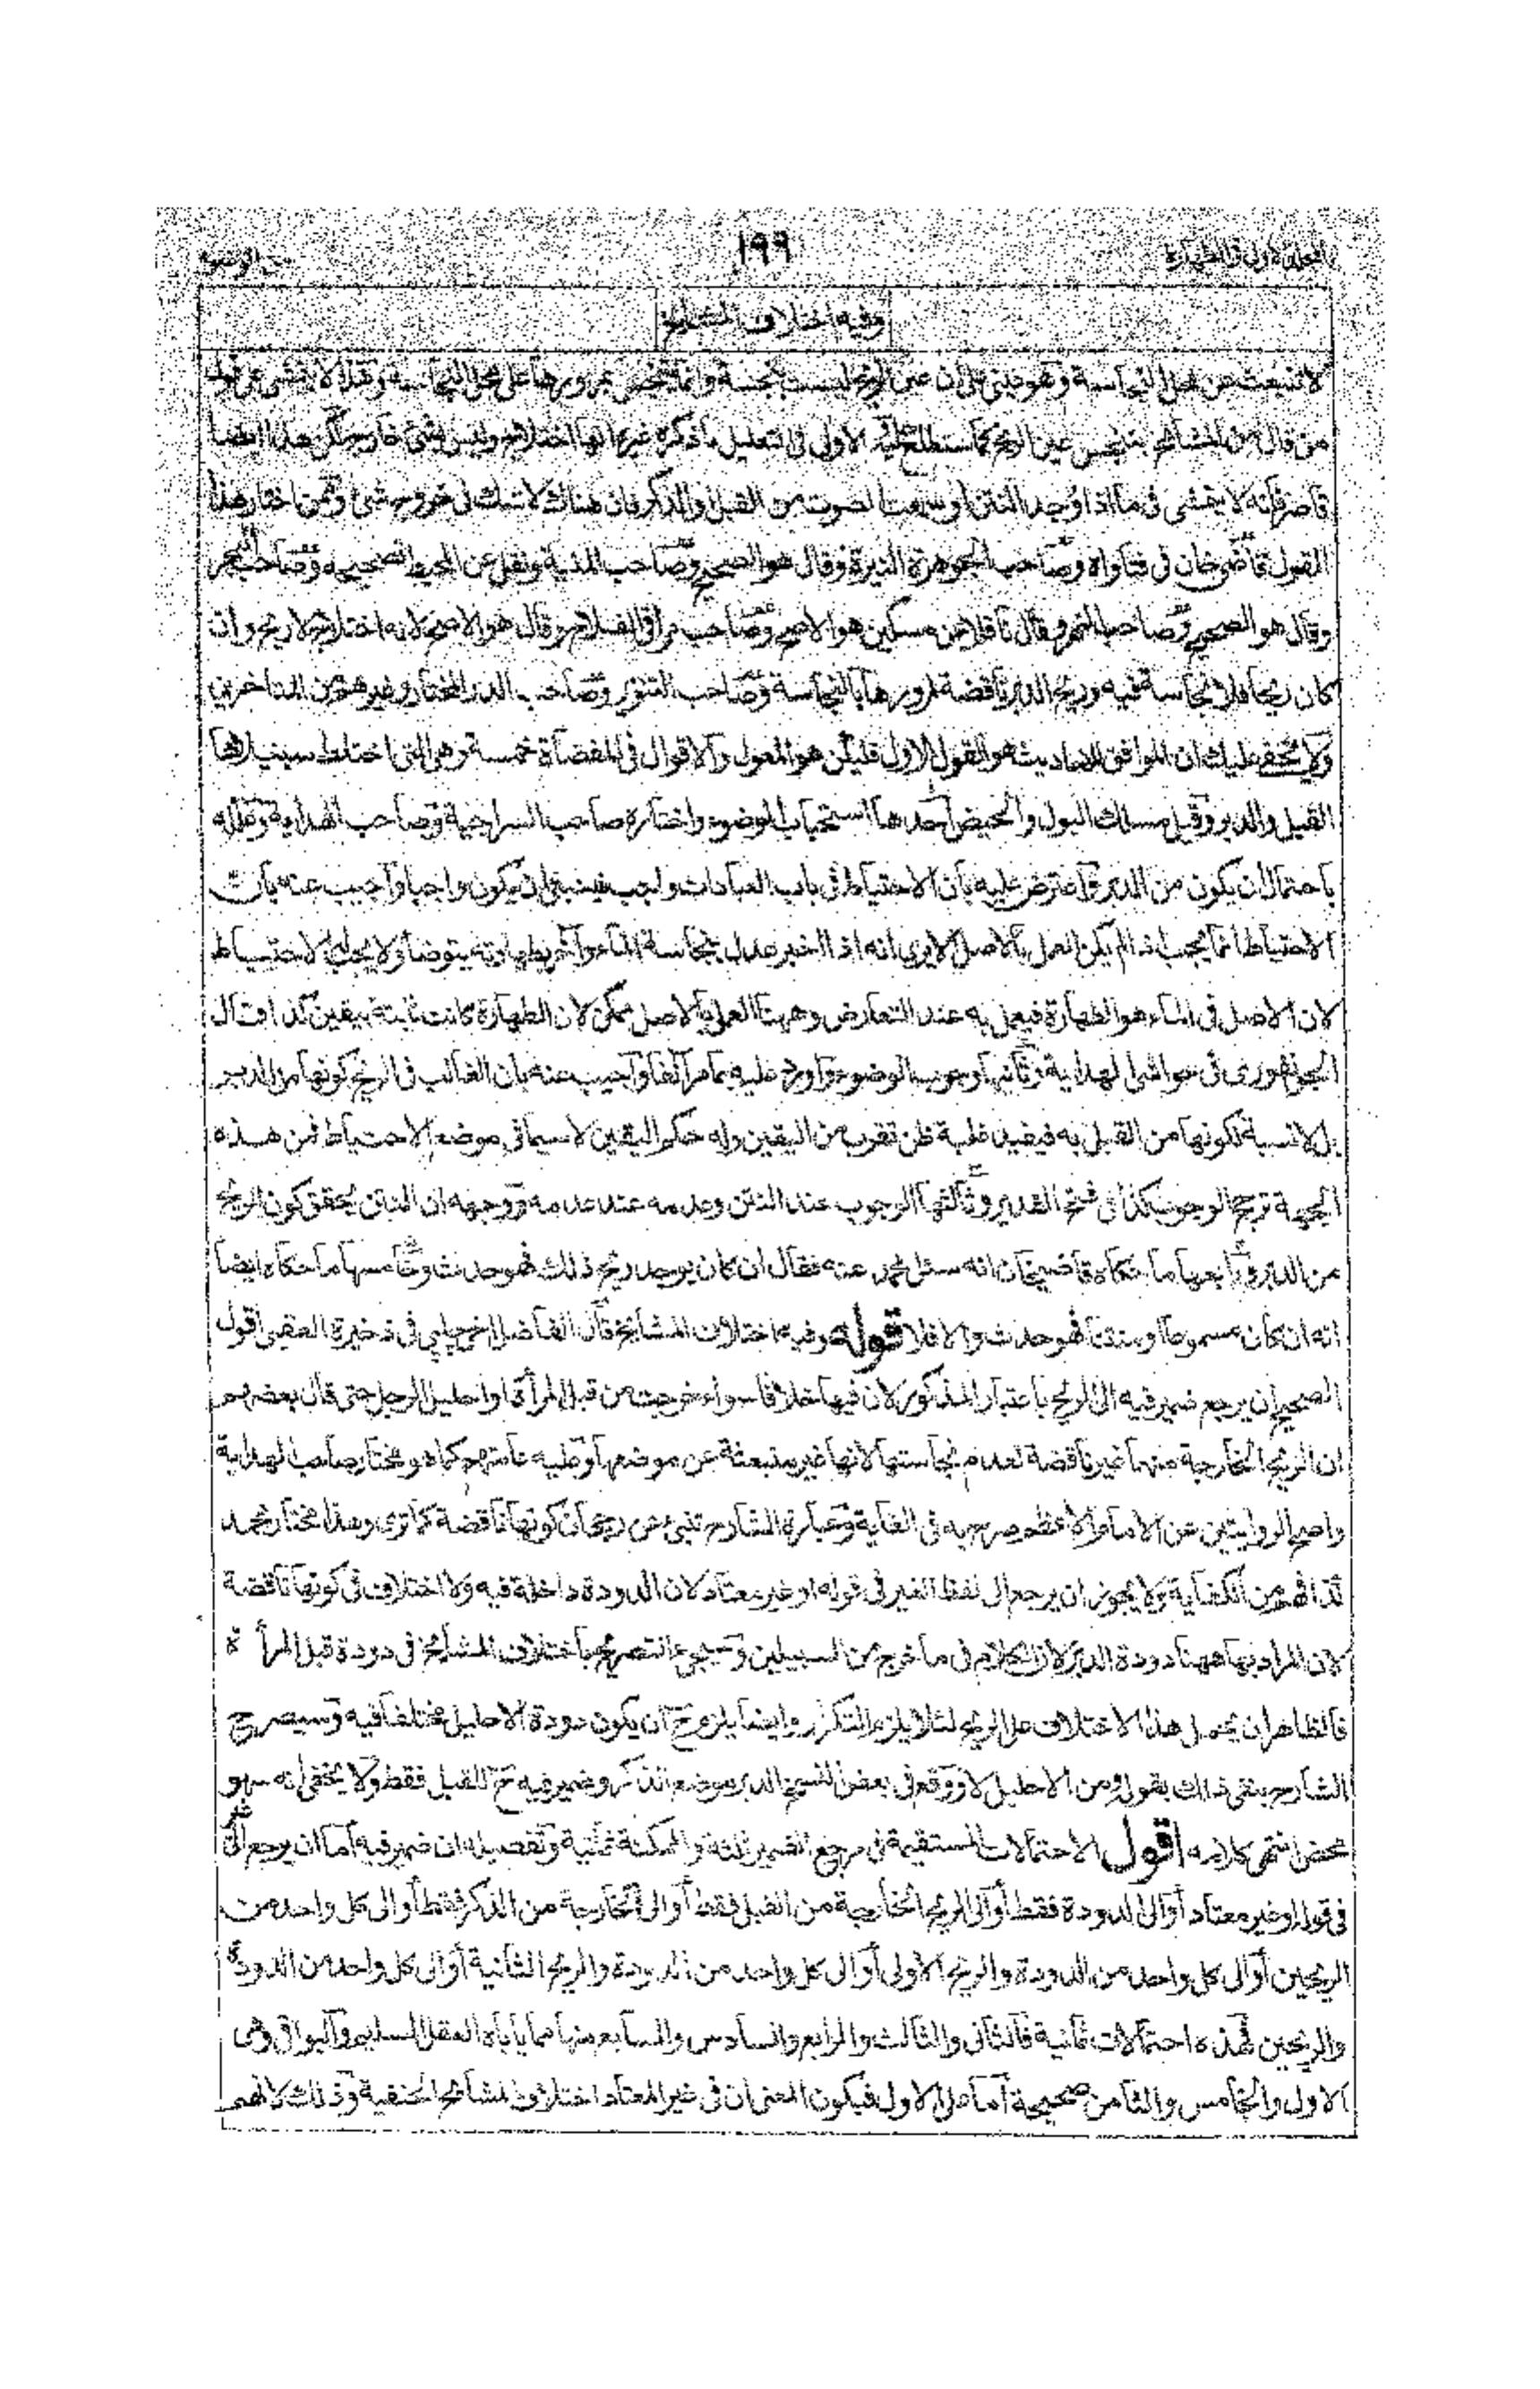 ١٩٩
المجلد الاول فى الطهارة
الوضوء
وفيه اختلاف المشايخ
لا تنبعث عن محل النجاسة وهو مبنى على ان عين الريح ليست بنجسة وانما يتنجس بمرورها على محل النجاسة وهذا لا يتمشى على قول
من قال من المشايخ بتنجس عين الريح كما ستطلع عليه الاولى فى التعليل ما ذكره غيره انها اختلاج وليس بشئ خارج لكن هذا ايضا
قاصر فانه لا يتمشى فى ما اذا وجد النتن او سمعت الصوت من القبل او الذكر فان هناك لا شك فى خروج شئ وممن اختار هذا
القول قاضى خان فى فتاواه وصاحب الجوهرة النيرة وقال هو الصحيح وصاحب المنية ونقل عن المحيط تصحيحه وصاحب البحر
وقال هو الصحيح وصاحب النهر وقال ناقلا عن مسكين هو الاصح وصاحب مراقى الفلاح وقال هو الاصح لانه اختلاج لا ريح وان
كان ريحا فلا نجاسة فيه وريح الدبر ناقضة لمرورها بالنجاسة وصاحب التنوير وصاحب الدر المختار وغيرهم من المتاخرين
ولا يخفى عليك ان الموافق للاحاديث هو القول الاول فليكن هو المعول والاقوال فى المفضاة خمسة وهى التى اختلط سبيلاها
القبل والدبر وقيل مسلك البول والحيض احدها استحباب الوضوء واختاره صاحب السراجية وصاحب الهداية وعلله
باحتمال ان يكون من الدبر واعترض عليه بان الاحتياط فى باب العبادات واجب فينبغى ان يكون واجبا واجيب عنه بان
الاحتياط انما يجب اذا لم يكن العمل بالاصل الا يرى انه اذا اخبر عدل بنجاسة الماء وآخر بطهارته يتوضأ ولا يجب الاحتياط
لان الاصل فى الماء هو الطهارة فيعمل به عند التعارض وههنا العمل بالاصل ممكن لان الطهارة كانت ثابتة بيقين كذا قال
الجونفورى فى حواشى الهداية وثانيها وجوب الوضوء واورد عليه بما مر آنفا واجيب عنه بان الغالب فى الريح كونها من الدبر
بل لا نسبة لكونها من القبل به فيفيد غلبة ظن تقرب من اليقين وله حكم اليقين لا سيما فى موضع الاحتياط فمن هذه
الجهة ترجح الوجوب كذا فى فتح القدير وثالثها الوجوب عند النتن وعدمه عند عدمه ووجهه ان النتن يحقق كون الريح
من الدبر ورابعها ما حكاه قاضيخان انه سئل محمد عنه فقال ان كان يوجد ريح ذلك فهو حدث وخامسها ما حكاه ايضا
انه ان كان مسموعا او منتنا فهو حدث والا فلا قوله وفيه اختلاف المشايخ قال الفاضل اخى چلپى فى ذخيرة العقبى اقول
الصحيح ان يرجع ضمير فيه الى الريح باعتبار المذكور لان فيها خلافا سواء خرجت من قبل المرأة او احليل الرجل حتى قال بعضهم
ان الريح الخارجة منهما غير ناقضة لعدم نجاستها لانها غير منبعثة عن موضعها وعليه عامتهم كما هو مختار صاحب الهداية
واصح الروايتين عن الامام الاعظم صرح به فى الغاية وعبارة الشارح تنبئ عن رجحان كونها ناقضة كما ترى وهذا مختار محمد
كذا فهم من الكفاية ولا يجوز ان يرجع الى لفظ الغير فى قوله او غير معتاد لان الدودة داخلة فيه ولا اختلاف فى كونها ناقضة
لان المراد بها ههنا دودة الدبر لان الكلام فى ما خرج من السبيلين وسيجئ التصريح باختلاف المشايخ فى دودة قبل المرأة
فالظاهر ان يحمل هذا الاختلاف على الريح لئلا يلزم التكرار وايضا يلزم ح ان يكون دودة الاحليل مختلفا فيه وسيصرح
الشارح بنفى ذلك بقوله ومن الاحليل لا ووقع فى بعض النسخ الدبر موضع الذكر وضمير فيه ح للقبل فقط ولا يخفى انه سهو
محض انتهى كلامه اقول الاحتمالات المستقيمة فى مرجع الضمير ثلثة والممكنة ثمانية وتفصيله ان ضمير فيه اما ان يرجع الى
فى قوله او غير معتاد او الى الدودة فقط او الى الريح الخارجة من القبل فقط او الى الخارجة من الذكر فقط او الى كل واحد من
الريحين او الى كل واحد من الدودة والريح الاولى او الى كل واحد من الدودة والريح الثانية او الى كل واحد من الدودة
والريحين فهذه احتمالات ثمانية فالثانى والثالث والرابع والسادس والسابع منها مما ياباه العقل السليم والبواقى وهى
الاول والخامس والثامن صحيحة اما على الاول فيكون المعنى ان فى غير المعتاد اختلاف المشايخ الحنفية وذلك لانهم